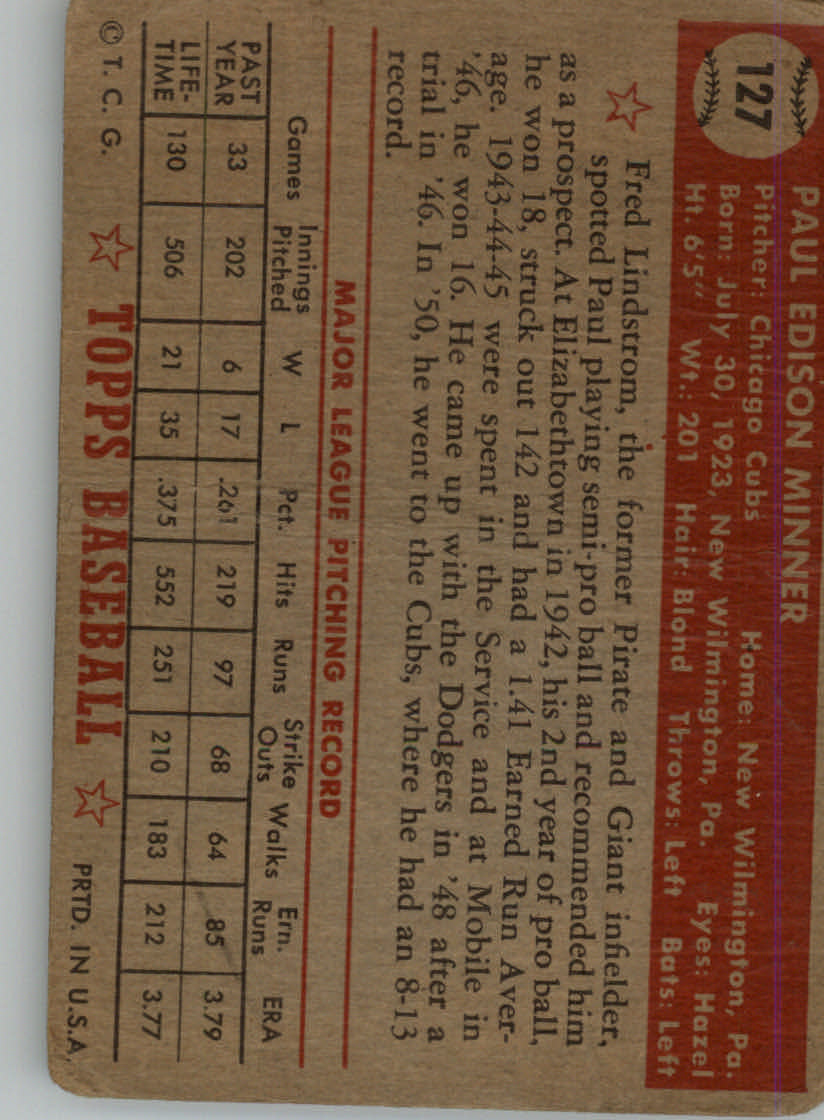 127
PAUL EDISON MINNER
Pitcher: Chicago Cubs Home: New Wilmington, Pa.
Born: July 30, 1923, New Wilmington, Pa. Eyes: Hazel
Ht. 6'5" Wt.: 201 Hair: Blond Throws: Left Bats: Left
Fred Lindstrom, the former Pirate and Giant infielder,
spotted Paul playing semi-pro ball and recommended him
as a prospect. At Elizabethtown in 1942, his 2nd year of pro ball,
he won 18, struck out 142 and had a 1.41 Earned Run Aver-
age. 1943-44-45 were spent in the Service and at Mobile in
'46, he won 16. He came up with the Dodgers in '48 after a
trial in '46. In '50, he went to the Cubs, where he had an 8-13
record.
MAJOR LEAGUE PITCHING RECORD
Games Innings Pitched W L Pct. Hits Runs Strike Outs Walks Ern. Runs ERA
PAST YEAR 33 202 6 17 .261 219 97 68 64 85 3.79
LIFE-TIME 130 506 21 35 .375 552 251 210 183 212 3.77
© T. C. G. TOPPS BASEBALL PRTD. IN U.S.A.